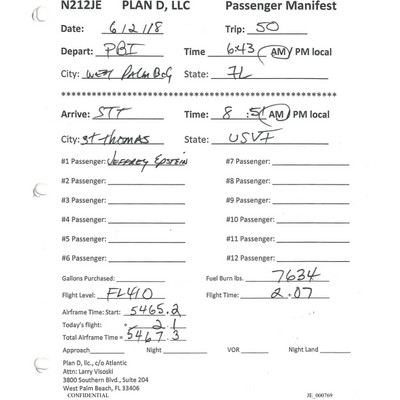 N212JE PLAN D, LLC Passenger Manifest
Date: 6/2/18 Trip: 50
Depart: PBI Time 6:43 AM / PM local
City: West Palm Bch State: FL
Arrive: STT Time: 8:51 AM / PM local
City: St Thomas State: USVI
#1 Passenger: Jeffrey Epstein #7 Passenger:
#2 Passenger: #8 Passenger:
#3 Passenger: #9 Passenger:
#4 Passenger: #10 Passenger:
#5 Passenger: #11 Passenger:
#6 Passenger: #12 Passenger:
Gallons Purchased: Fuel Burn lbs. 7634
Flight Level: FL410 Flight Time: 2.07
Airframe Time: Start: 5465.2
Today's flight: + 2.1
Total Airframe Time = 5467.3
Approach Night VOR Night Land
Plan D, llc., c/o Atlantic
Attn: Larry Visoski
3800 Southern Blvd., Suite 204
West Palm Beach, FL 33406
CONFIDENTIAL JE_000769